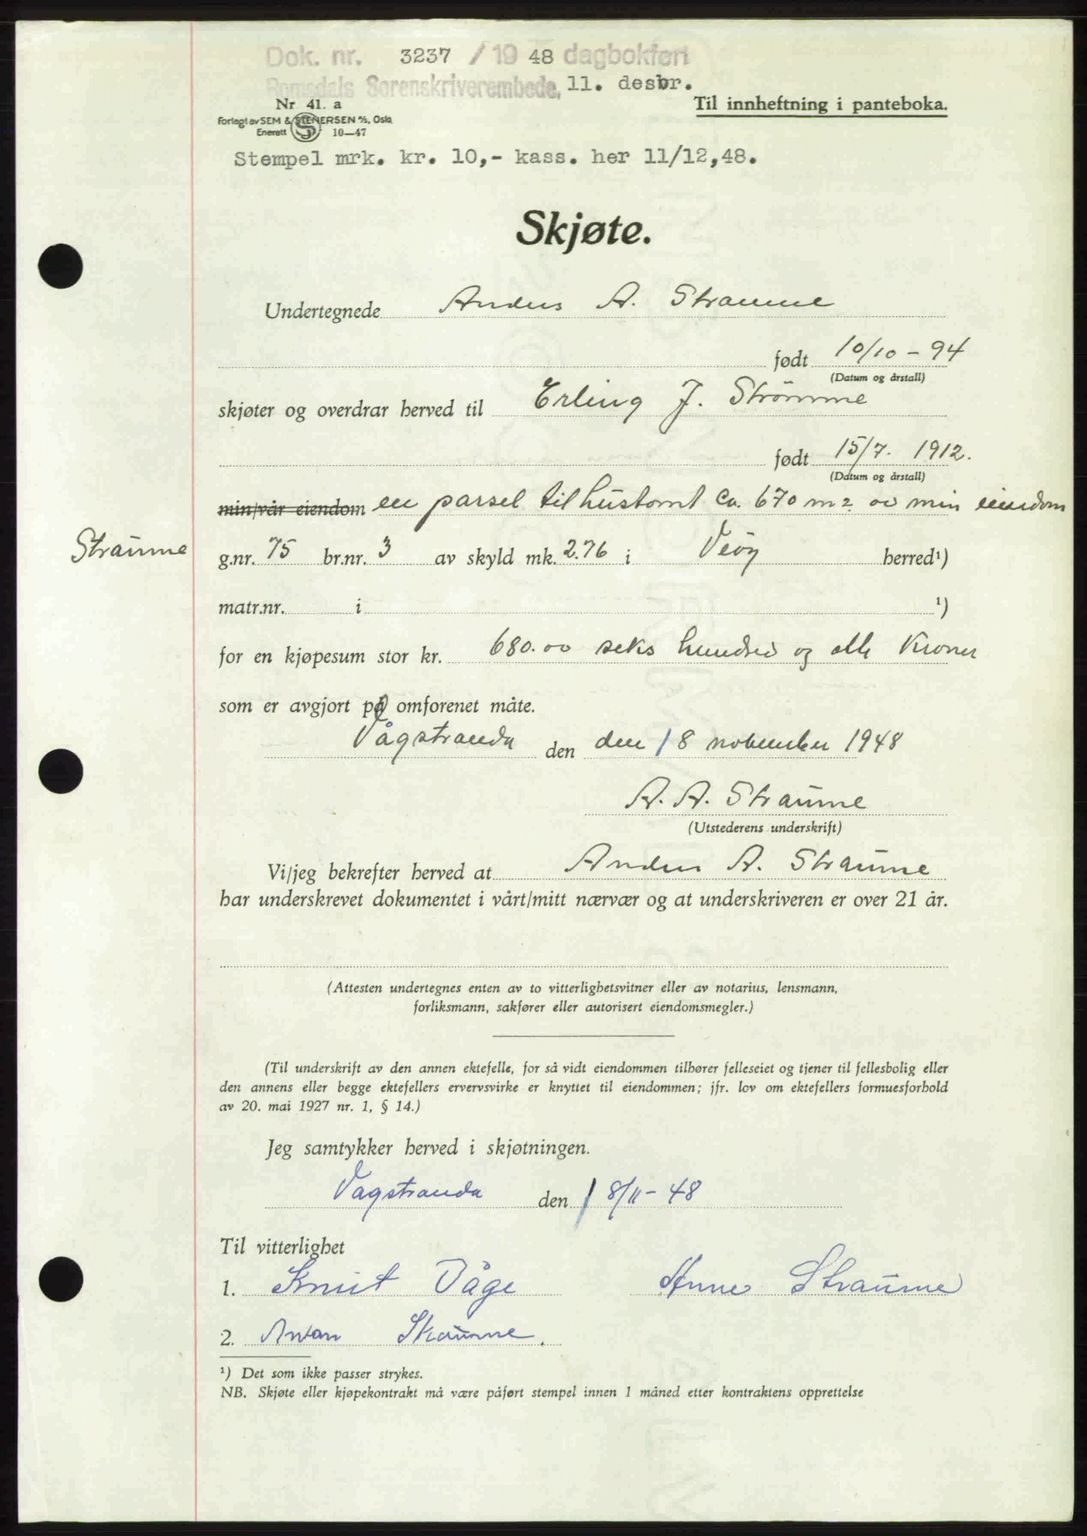 Dok. nr. 3237 / 19 48 dagbokført
Romsdals Sorenskriverembede, 11. desbr.
Nr 41. a
Til innheftning i panteboka.
Forlagt av SEM & STENERSEN A/S, Oslo
Enerett 10—47
Stempel mrk. kr. 10,- kass. her 11/12,48.
Skjøte.
Undertegnede Anders A. Straume
født 10/10 - 94
(Datum og årstall)
skjøter og overdrar herved til Erling J. Strømme
født 15/7. 1912.
(Datum og årstall)
min/vår eiendom en parsel til hustomt ca. 670 m2 av min eiendom
Straume g.nr. 75 br.nr. 3 av skyld mk. 2.76 i Veøy herred¹)
matr.nr. i ¹)
for en kjøpesum stor kr. 680.00 seks hundred og otti Kroner
som er avgjort på omforenet måte.
Vågstranda den den 18 november 1948
A. A. Straume
(Utstederens underskrift)
Vi/jeg bekrefter herved at Anders A. Straume
har underskrevet dokumentet i vårt/mitt nærvær og at underskriveren er over 21 år.
(Attesten undertegnes enten av to vitterlighetsvitner eller av notarius, lensmann,
forliksmann, sakfører eller autorisert eiendomsmegler.)
(Til underskrift av den annen ektefelle, for så vidt eiendommen tilhører felleseiet og tjener til fellesbolig eller
den annens eller begge ektefellers ervervsvirke er knyttet til eiendommen; jfr. lov om ektefellers formuesforhold
av 20. mai 1927 nr. 1, § 14.)
Jeg samtykker herved i skjøtningen.
Vågstranda den 18/11 - 48
Til vitterlighet
1. Knut Våge Anne Straume
2. Skaumme.
¹) Det som ikke passer strykes.
NB. Skjøte eller kjøpekontrakt må være påført stempel innen 1 måned etter kontraktens opprettelse